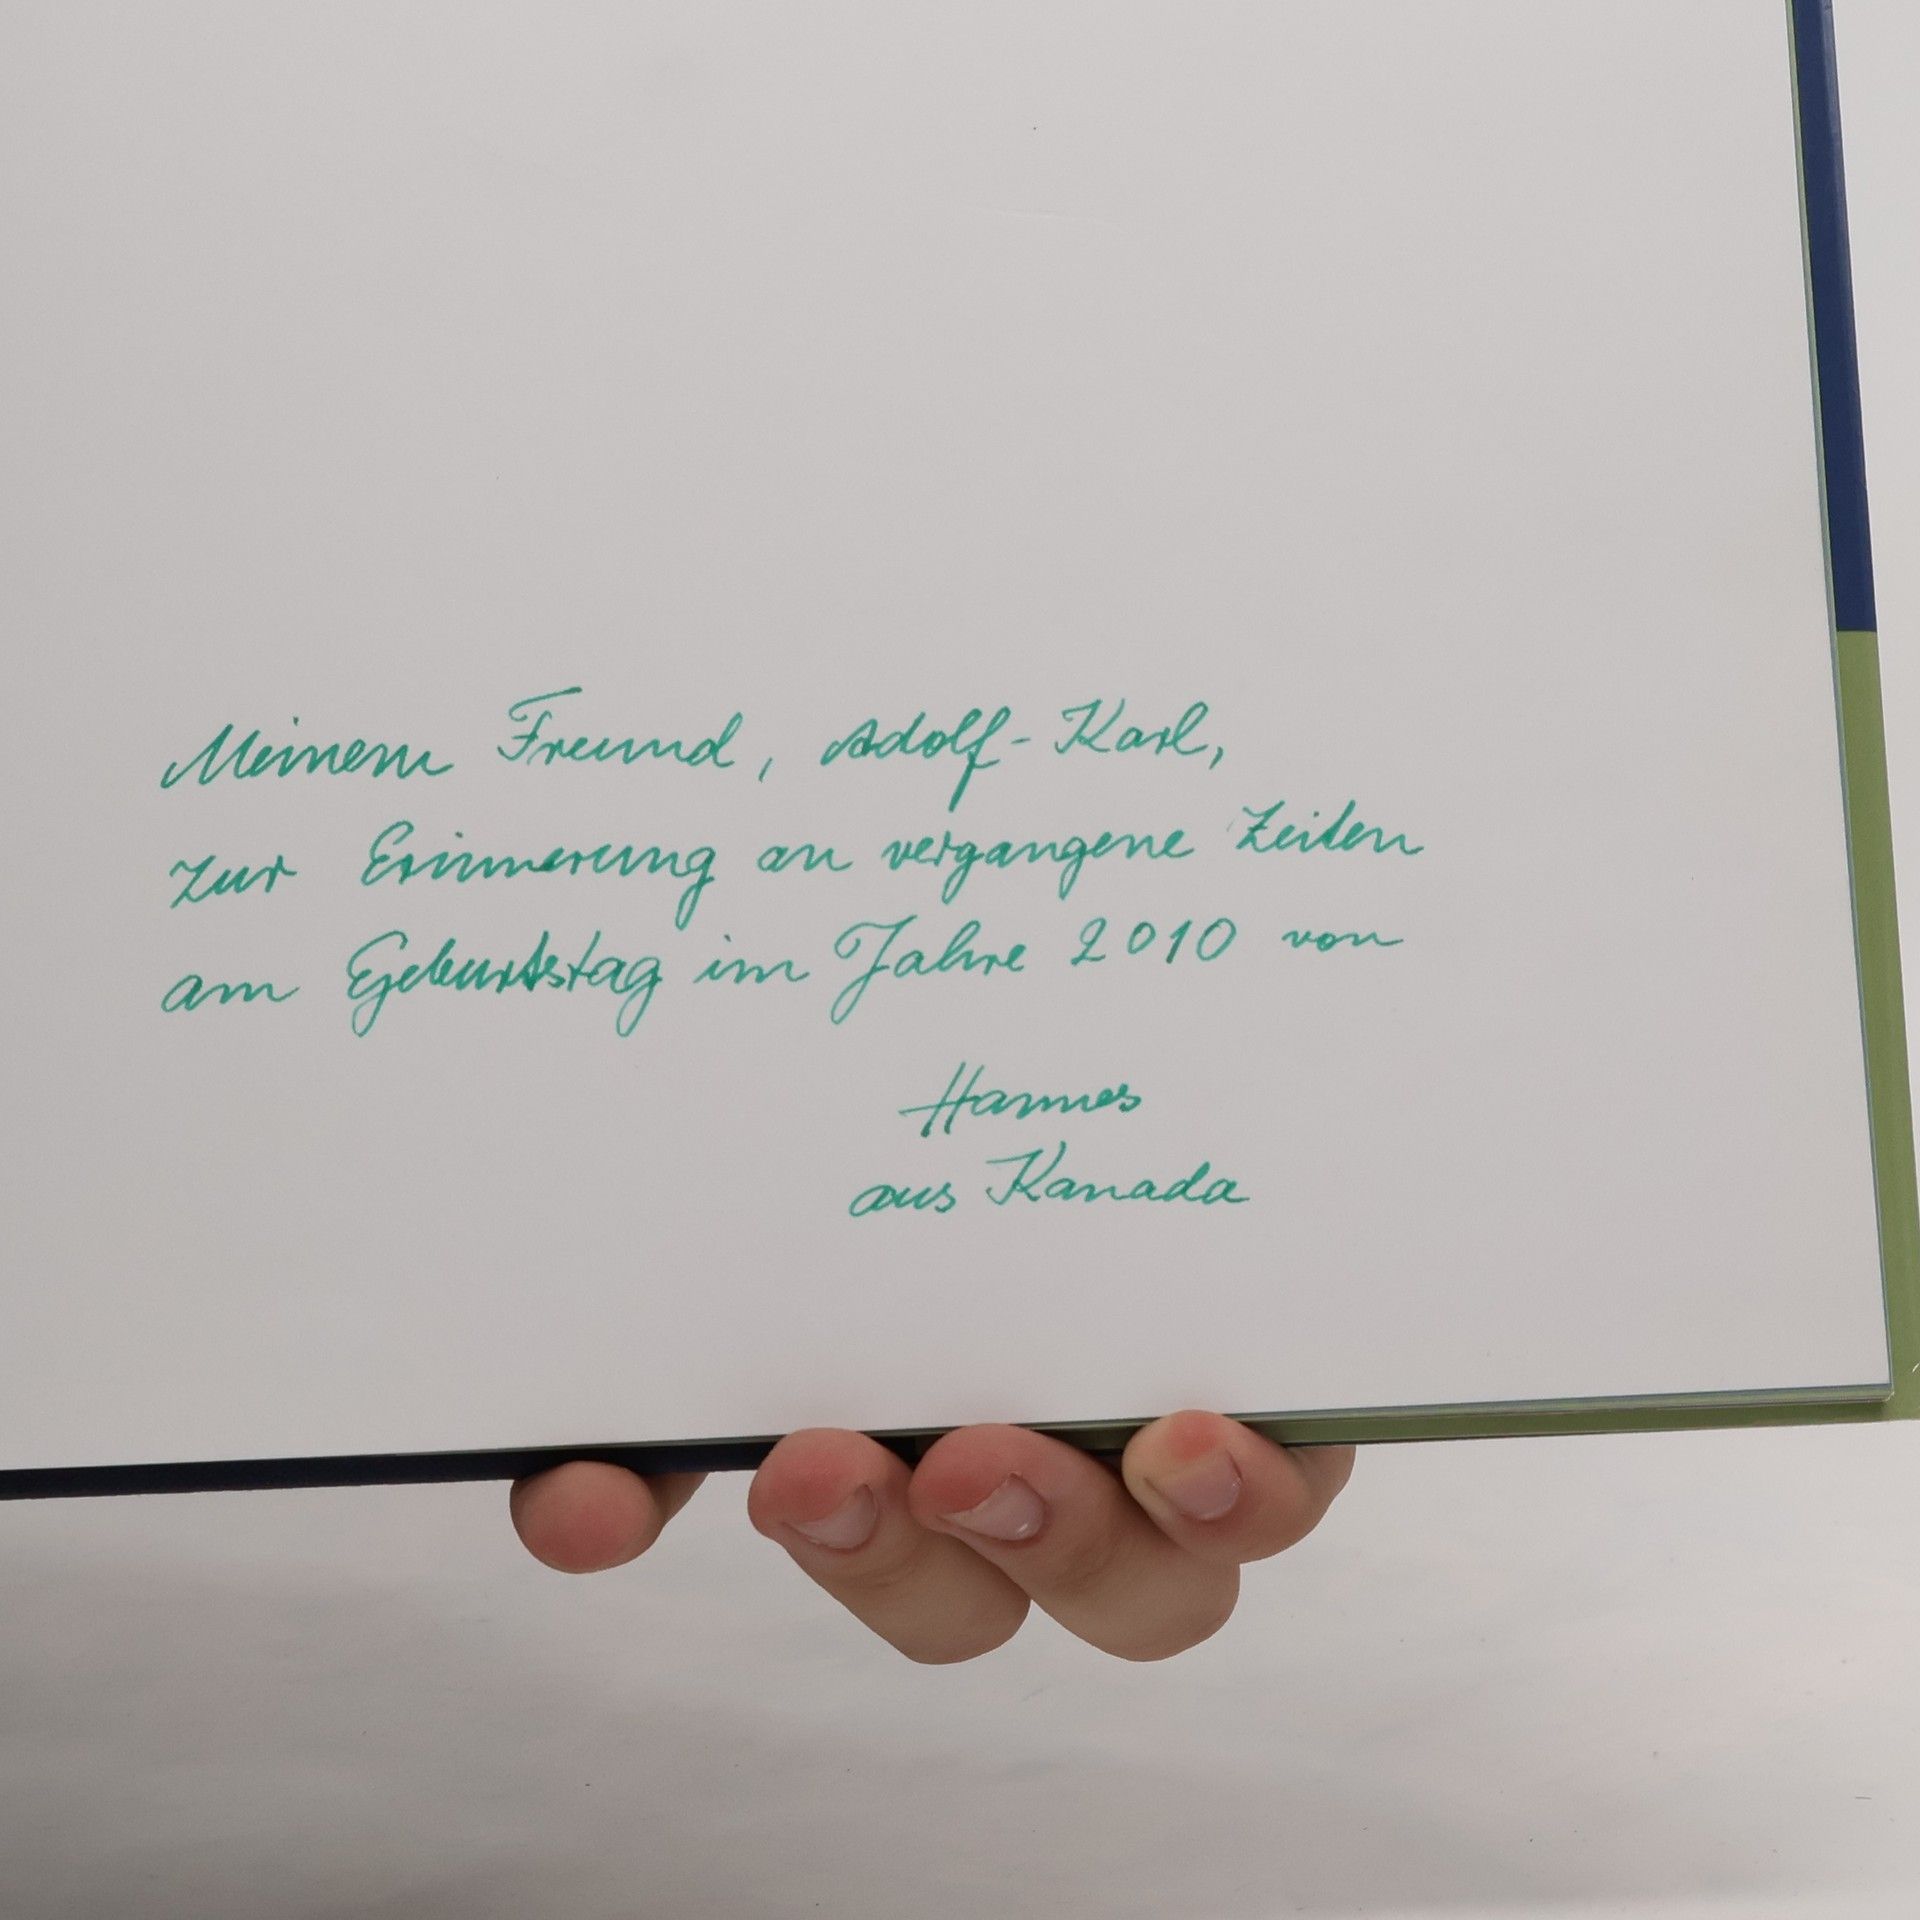 Meinem Freund, Adolf-Karl,
zur Erinnerung an vergangene Zeiten
am Geburtstag im Jahre 2010 von
Hannes
aus Kanada